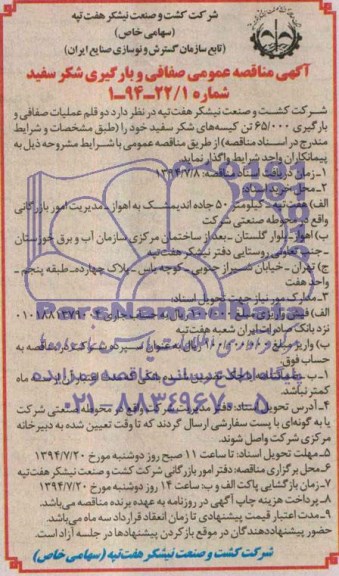 شرکت کشت و صنعت نیشکر هفت تپه
(سهامی خاص)
(تابع سازمان گسترش و نوسازی صنایع ایران)
آگهی مناقصه عمومی صفافی و بارگیری شکر سفید
شماره ۲۲/۱-۹۴-۱
شرکت کشت و صنعت نیشکر هفت‌تپه در نظر دارد دو قلم عملیات صفافی و
بارگیری ۶۵/۰۰۰ تن کیسه‌های شکر سفید خود را (طبق مشخصات و شرایط
مندرج در اسناد مناقصه) از طریق مناقصه عمومی با شرایط مشروحه ذیل به
پیمانکاران واجد شرایط واگذار نماید
۱-زمان دریافت اسناد مناقصه: ۱۳۹۴/۷/۸
۲-محل خرید اسناد:
الف) هفت‌تپه - کیلومتر ۵۰ جاده اندیمشک به اهواز - مدیریت امور بازرگانی
واقع در محوطه صنعتی شرکت
ب) اهواز - بلوار گلستان - بعد از ساختمان مرکزی سازمان آب و برق خوزستان
- جنب تعاونی روستایی دفتر نیشکر هفت تپه
ج) تهران - خیابان شیراز جنوبی - کوچه یاس - پلاک چهارده - طبقه پنجم -
واحد هفت
۳-مدارک مورد نیاز جهت تحویل اسناد:
الف) فیش واریزی مبلغ ریال به حساب جاری
نزد بانک صادرات ایران شعبه هفت تپه
ب) واریز مبلغ ریال به عنوان سپرده شرکت در مناقصه به
حساب فوق.
کمتر نباشد.
۴-آدرس تحویل اسناد: دفتر مدیریت شرکت واقع در محوطه صنعتی شرکت
یا به گونه‌ای با پست سفارشی ارسال گردند که تا وقت تعیین شده به دبیرخانه
مرکزی شرکت واصل شوند.
۵-مهلت تحویل اسناد: تا ساعت ۱۱ صبح روز دوشنبه مورخ ۱۳۹۴/۷/۲۰
۶-محل برگزاری مناقصه: دفتر امور بازرگانی شرکت کشت و صنعت نیشکر هفت‌تپه
۷-زمان بازگشایی پاکت الف و ب: ساعت ۱۴ روز دوشنبه مورخ ۱۳۹۴/۷/۲۰
۸-پرداخت هزینه چاپ آگهی در روزنامه به عهده برنده مناقصه می‌باشد.
۹-مدت اعتبار قیمت پیشنهادی تا زمان انعقاد قرارداد سه ماه می‌باشد.
حضور پیشنهاددهندگان در موقع باز کردن پیشنهادها در جلسه آزاد است.
شرکت کشت و صنعت نیشکر هفت‌تپه (سهامی خاص)
ParsNamadData
پایگاه اطلاع رسانی مناقصه و مزایده
۰۲۱-۸۸۳۴۹۶۷۰-۵